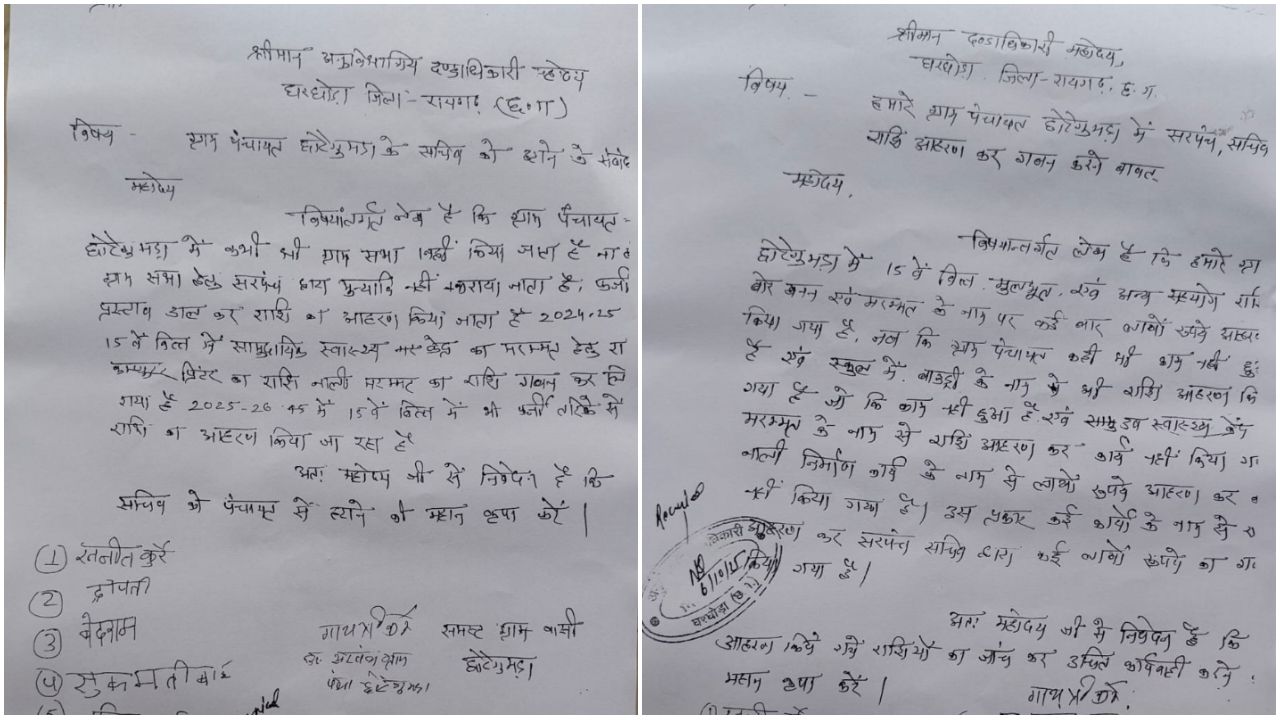 श्रीमान अनुविभागिय दण्डाधिकारी महोदय
घरघोड़ा जिला - रायगढ़ (छ.ग)
विषय - ग्राम पंचायत छोटेगुमड़ा के सचिव को हटाने के संबंध
महोदय
विषयांतर्गत लेख है कि ग्राम पंचायत -
छोटेगुमड़ा में कभी भी ग्राम सभा नहीं किया जाता है ना
ग्राम सभा हेतु सरपंच द्वारा मुन्यादि नहीं कराया जाता है। फर्जी
प्रस्ताव डाल कर राशि का आहरण किया जाता है 2024-25
15 वें वित्त में सामुदायिक स्वास्थ्य केन्द्र का मरम्मत हेतु रा
कम्प्यूटर प्रिंटर का राशि नाली मरम्मट का राशि गबन कर लि
गया है 2025-26 में 15 वें वित्त में भी फर्जी तरिके से
राशि का आहरण किया जा रहा है
अतः महोदय जी से निवेदन है कि
सचिव को पंचायत से हटाने की महान कृपा करें |
① रतनीत कुर्रे
② द्रोपती
③ वेदराम
④ सुकमती बाई
⑤
गायत्री कुर्रे
ग्राम
छोटेगुमड़ा
समस्त ग्राम वासी
छोटेगुमड़ा
श्रीमान दण्डाधिकारी महोदय,
घरघोड़ा जिला - रायगढ़, छ.ग.
विषय - हमारे ग्राम पंचायत छोटेगुमड़ा में सरपंच, सचिव
राशि आहरण कर गबन करने बाबत्
महोदय,
विषयान्तर्गत लेख है कि हमारे ग्रा
छोटेगुमड़ा में 15 वें वित्त, मुलभूत, एवं अन्य सहयोग राशि
बोर खनन एवं मरम्मत के नाम पर कई बार लाखों रूपये आहर
किया गया है, जब कि ग्राम पंचायत कही भी काम नहीं हु
है एवं स्कूल में, बाउंड्री के नाम से भी राशि आहरण कि
गया है जो कि काम नही हुआ है एवं सामुदाय स्वास्थ्य केंद्र
मरम्मत के नाम से राशि आहरण कर कार्य नहीं किया ग
नाली निर्माण कार्य के नाम से लाखों रूपये आहरण कर
नहीं किया गया है | इस प्रकार कई कार्यों के नाम से
आहरण कर सरपंच सचिव द्वारा कई लाखों रूपये का ग
किया गया है |
Received
6/10/25
घरघोड़ा (छ.ग.)
अतः महोदय जी से निवेदन है कि
आहरण किये गये राशियों का जांच कर उचित कार्यवाही करने
महान कृपा करें |
गायत्री कुर्रे